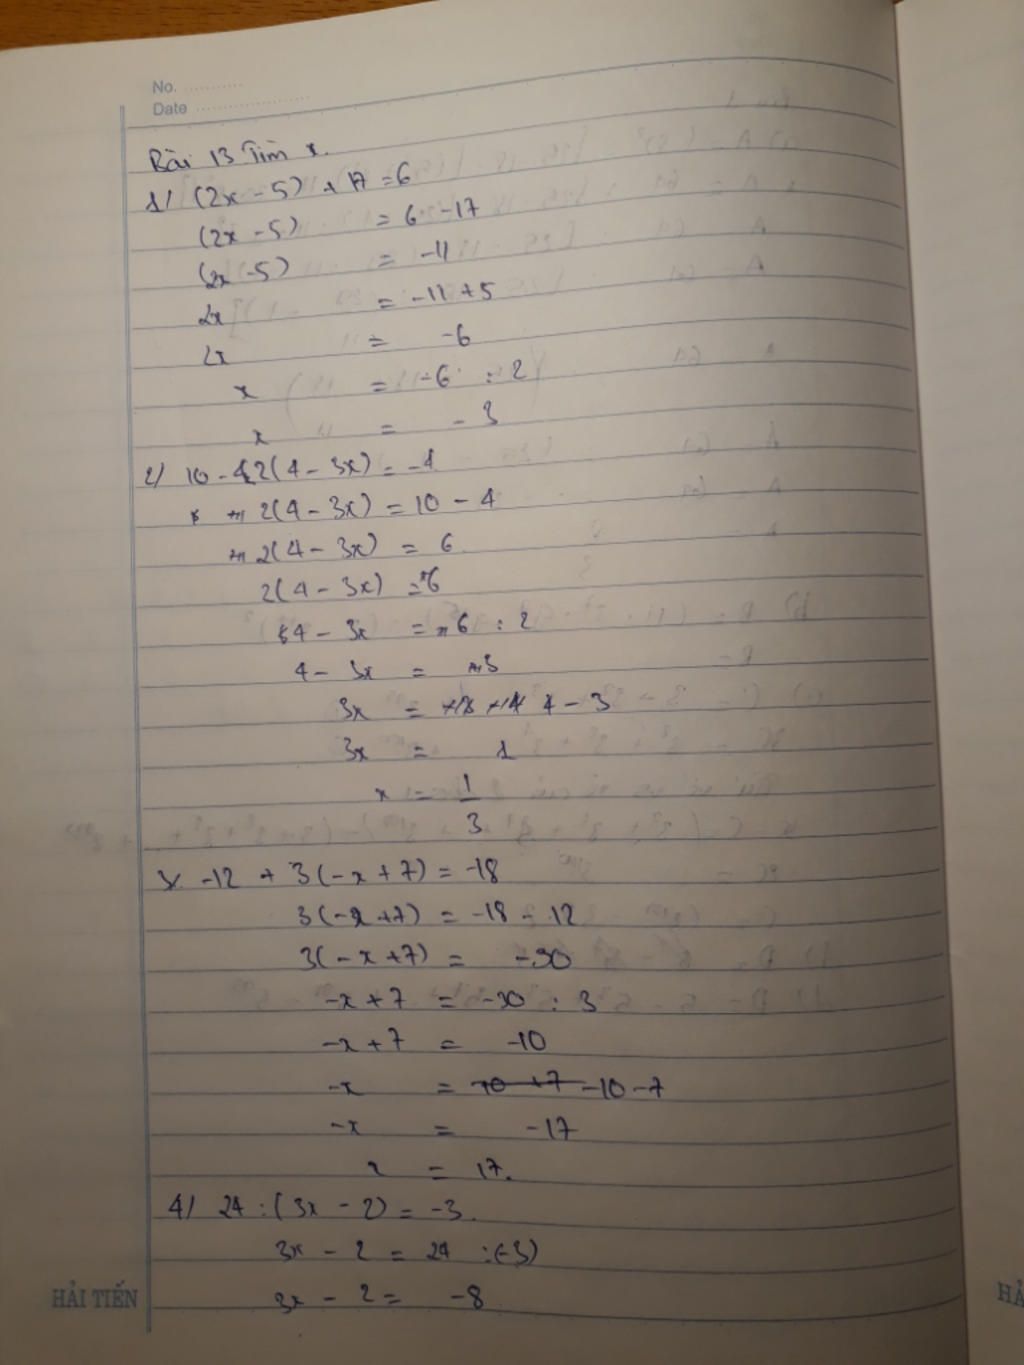 No. ............
Date ........................
Bài 13 Tìm x.
1/ (2x - 5) + 17 = 6
(2x - 5) = 6 - 17
(2x - 5) = -11
2x = -11 + 5
2x = -6
x = -6 : 2
x = -3
2/ 10 - 2(4 - 3x) = -4
2(4 - 3x) = 10 - 4
2(4 - 3x) = 6
2(4 - 3x) = 6
4 - 3x = 6 : 2
4 - 3x = 3
3x = 4 - 3
3x = 1
x = 1/3
3/ -12 + 3(-x + 7) = -18
3(-x + 7) = -18 - 12
3(-x + 7) = -30
-x + 7 = -30 : 3
-x + 7 = -10
-x = -10 - 7
-x = -17
x = 17.
4/ 24 : (3x - 2) = -3.
3x - 2 = 24 : (-3)
3x - 2 = -8
HẢI TIẾN
HẢ